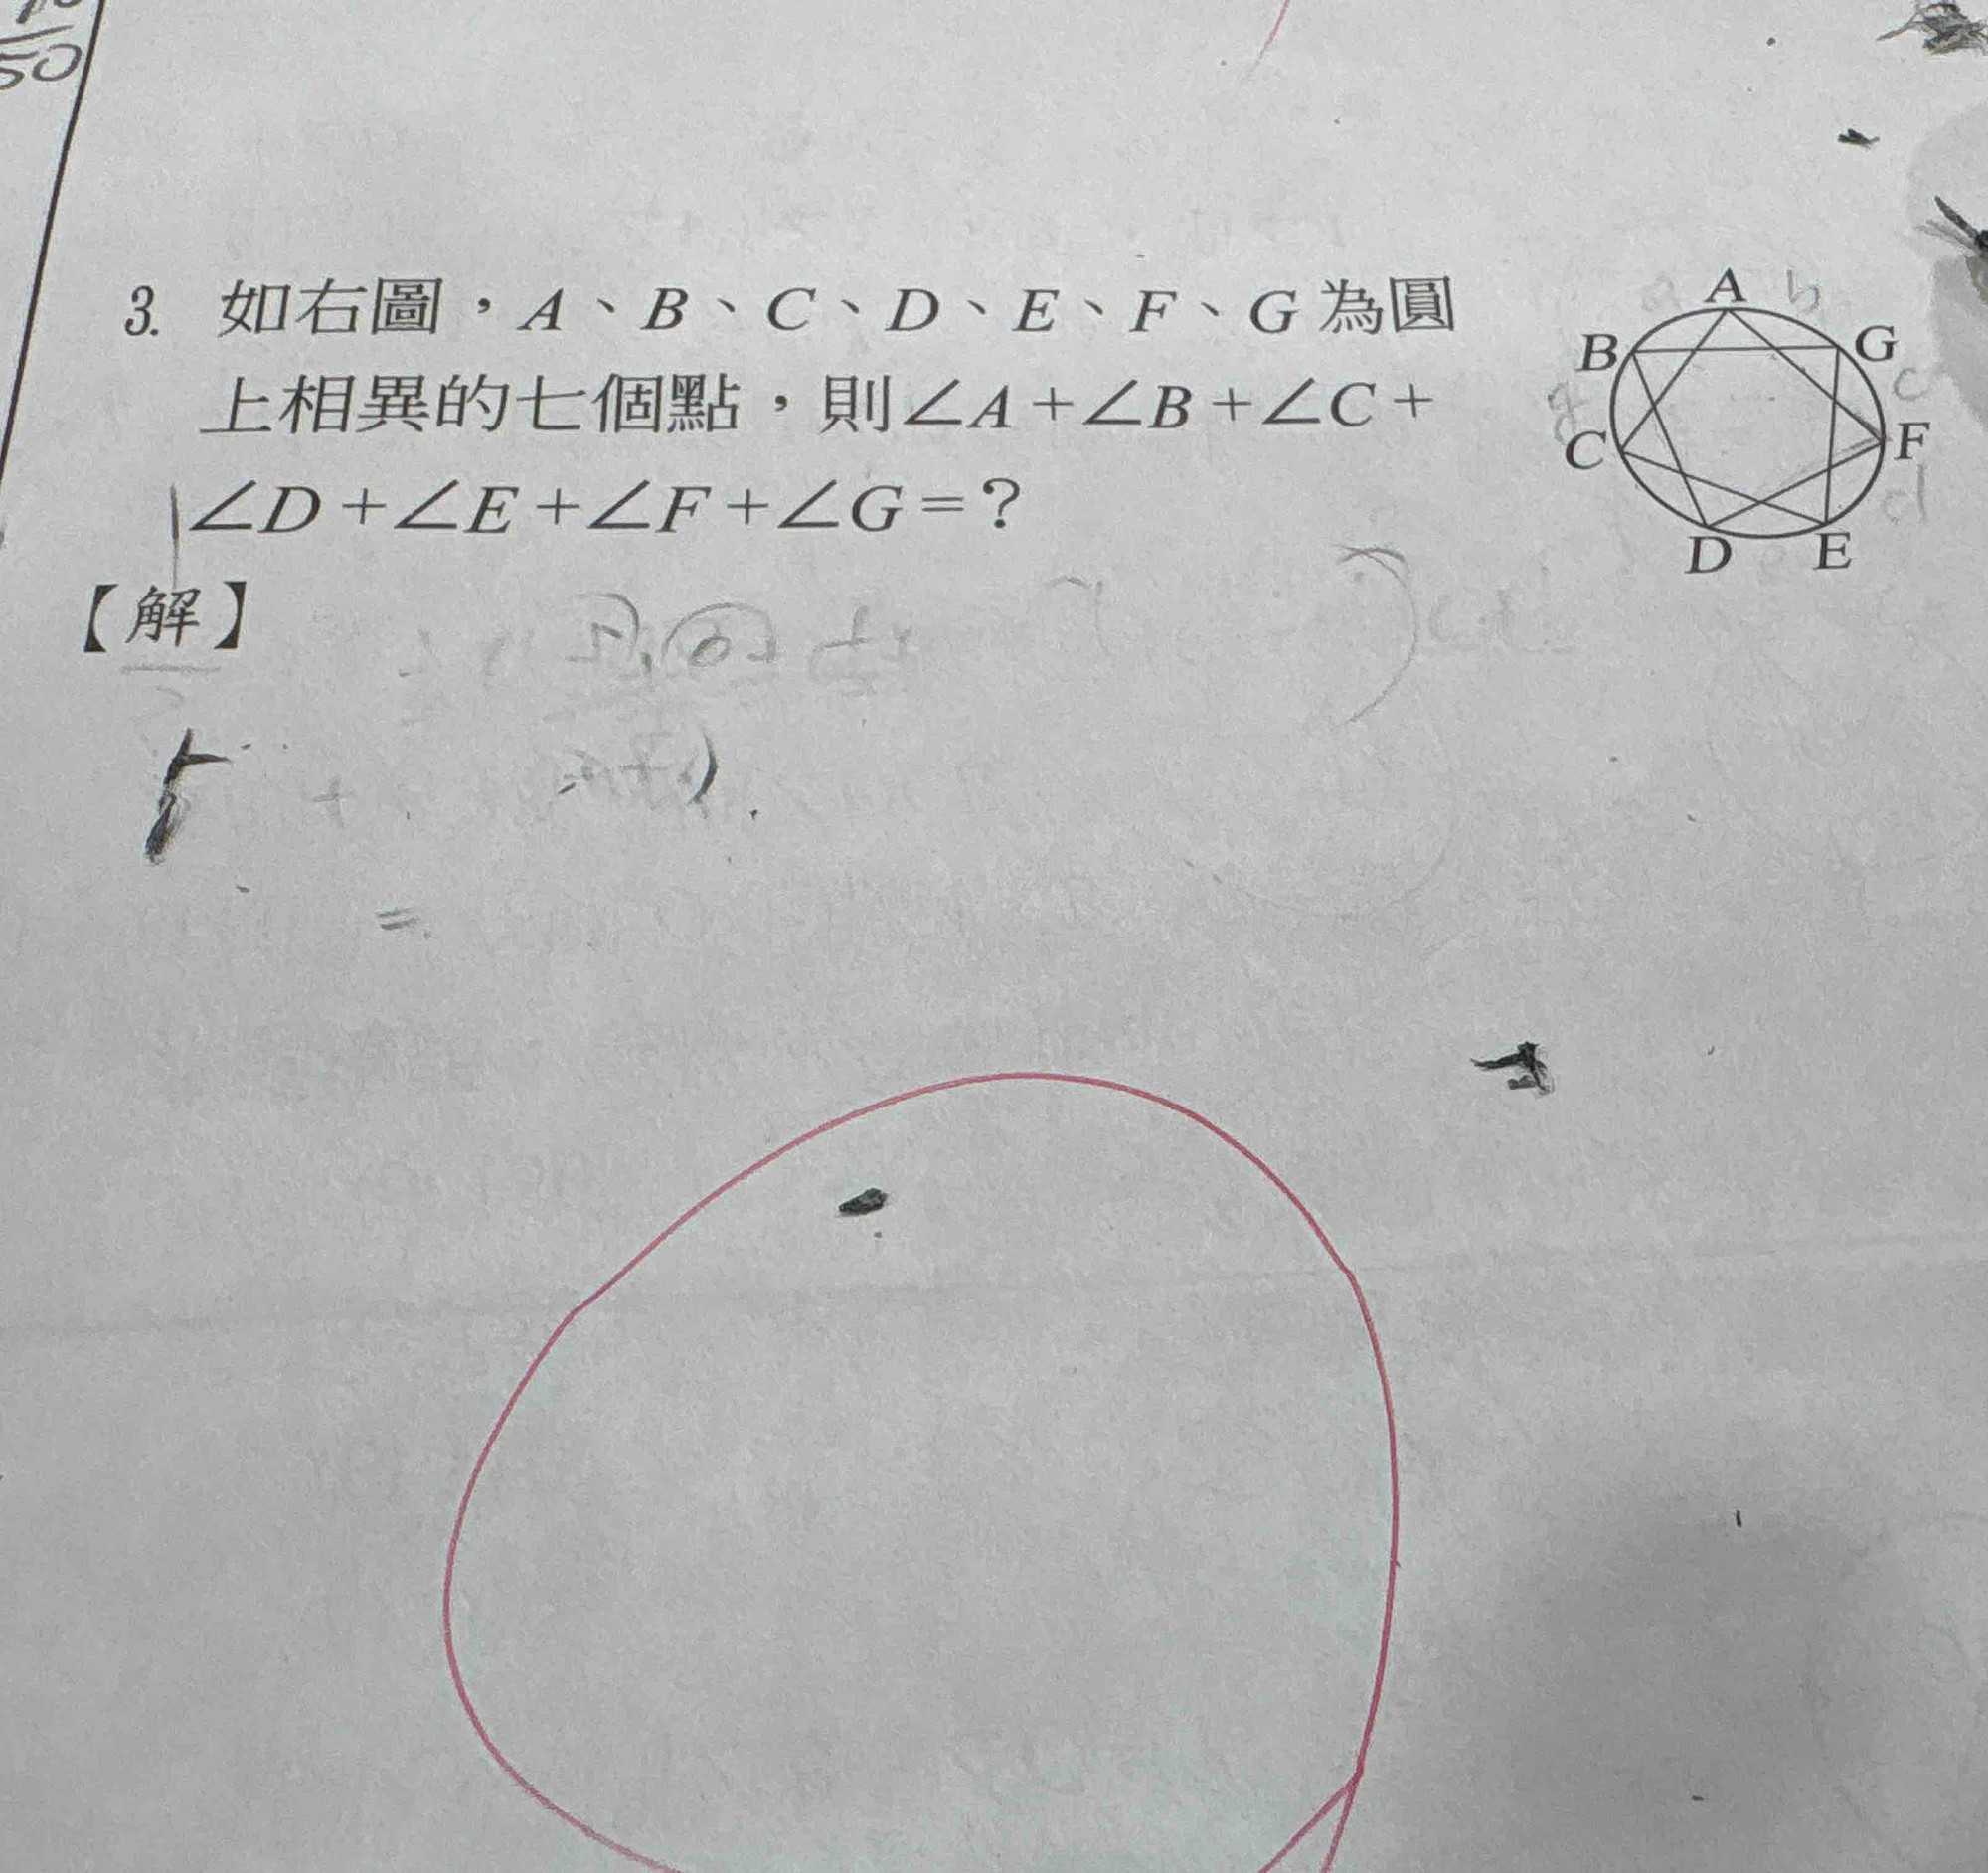 50
3. 如右圖，A、B、C、D、E、F、G 為圓
上相異的七個點，則∠A+∠B+∠C+
∠D+∠E+∠F+∠G=?
【解】
A
b
B
G
c
C
F
d
D
E
=